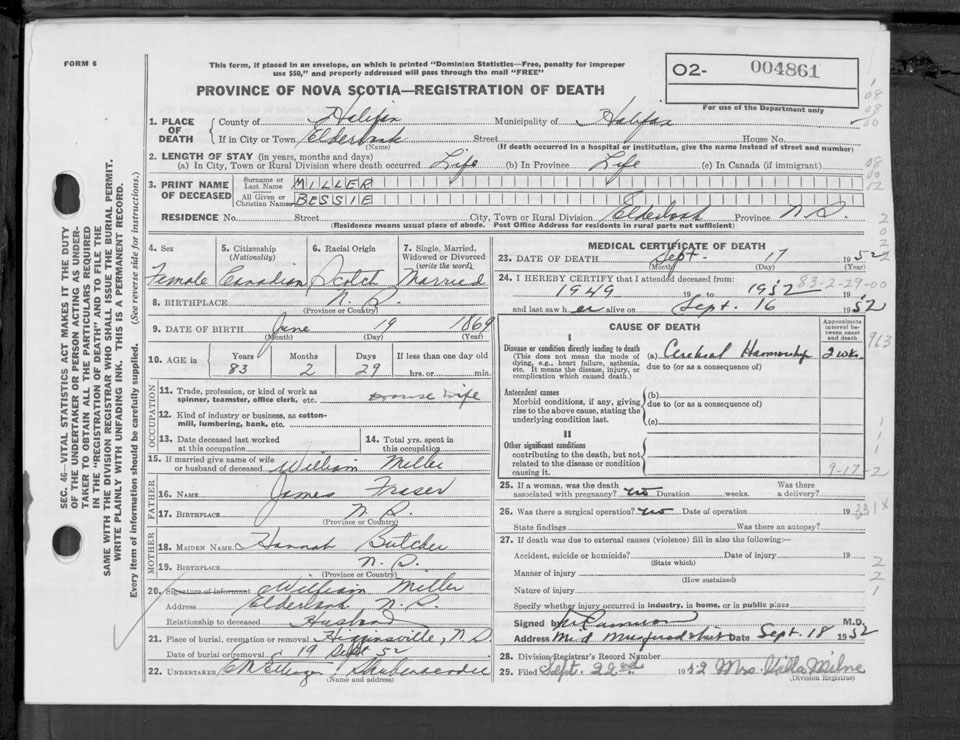 FORM 6
This form, if placed in an envelope, on which is printed "Dominion Statistics—Free, penalty for improper
use $50," and properly addressed will pass through the mail "FREE"
02- 004861
For use of the Department only
PROVINCE OF NOVA SCOTIA—REGISTRATION OF DEATH
1. PLACE OF DEATH County of Halifax Municipality of Halifax
If in City or Town Elderbank Street House No.
(Name) (If death occurred in a hospital or institution, give the name instead of street and number)
2. LENGTH OF STAY (in years, months and days)
(a) In City, Town or Rural Division where death occurred Life (b) In Province Life (c) In Canada (if immigrant)
3. PRINT NAME OF DECEASED Surname or Last Name MILLER
All Given or Christian Names BESSIE
RESIDENCE No. Street City, Town or Rural Division Elderbank Province N.S.
(Residence means usual place of abode. Post Office Address for residents in rural parts not sufficient)
4. Sex 5. Citizenship (Nationality) 6. Racial Origin 7. Single, Married, Widowed or Divorced (write the word)
Female Canadian Scotch Married
8. BIRTHPLACE N.S.
(Province or Country)
9. DATE OF BIRTH June 19 1869
(Month) (Day) (Year)
10. AGE in Years Months Days If less than one day old
83 2 29 hrs. or min.
OCCUPATION
11. Trade, profession, or kind of work as spinner, teamster, office clerk, etc. House wife
12. Kind of industry or business, as cotton-mill, lumbering, bank, etc.
13. Date deceased last worked at this occupation 14. Total yrs. spent in this occupation
15. If married give name of wife or husband of deceased William Miller
FATHER
16. NAME James Fraser
17. BIRTHPLACE N.S.
(Province or Country)
MOTHER
18. MAIDEN NAME Hannah Butcher
19. BIRTHPLACE N.S.
(Province or Country)
20. Signature of informant William Miller
Address Elderbank N.S.
Relationship to deceased Husband
21. Place of burial, cremation or removal Higginsville, N.S.
Date of burial or removal 19 Sept 52
22. UNDERTAKER Shubenacadie
(Name and address)
MEDICAL CERTIFICATE OF DEATH
23. DATE OF DEATH Sept. 17 1952
(Month) (Day) (Year)
24. I HEREBY CERTIFY that I attended deceased from: 83-2-29-00
1949 19 to 1952 19
and last saw her alive on Sept. 16 1952
CAUSE OF DEATH
Approximate interval between onset and death
963
I
Disease or condition directly leading to death (a) Cerebral Hammorhage 2 wks.
(This does not mean the mode of dying, e.g., heart failure, asthenia, etc. It means the disease, injury, or complication which caused death.)
due to (or as a consequence of)
Antecedent causes (b)
Morbid conditions, if any, giving rise to the above cause, stating the underlying condition last.
due to (or as a consequence of)
(c)
II
Other significant conditions
contributing to the death, but not related to the disease or condition causing it.
9-17-2
25. If a woman, was the death associated with pregnancy? no Duration weeks. Was there a delivery?
26. Was there a surgical operation? no Date of operation 19 331x
State findings Was there an autopsy?
27. If death was due to external causes (violence) fill in also the following:—
Accident, suicide or homicide? Date of injury 19
(State which)
Manner of injury
(How sustained)
Nature of injury
Specify whether injury occurred in industry, in home, or in public place
Signed by M.D.
Address Mid Musquodoboit Date Sept. 18 1952
28. Division Registrar's Record Number
29. Filed Sept. 22nd 1952 Mrs. Milne
(Division Registrar)
SEC. 46—VITAL STATISTICS ACT MAKES IT THE DUTY
OF THE UNDERTAKER OR PERSON ACTING AS UNDER-
TAKER TO OBTAIN ALL THE PARTICULARS REQUIRED
IN THE "REGISTRATION OF DEATH" AND TO FILE THE
SAME WITH THE DIVISION REGISTRAR WHO SHALL ISSUE THE BURIAL PERMIT.
WRITE PLAINLY WITH UNFADING INK. THIS IS A PERMANENT RECORD.
Every item of information should be carefully supplied. (See reverse side for instructions.)